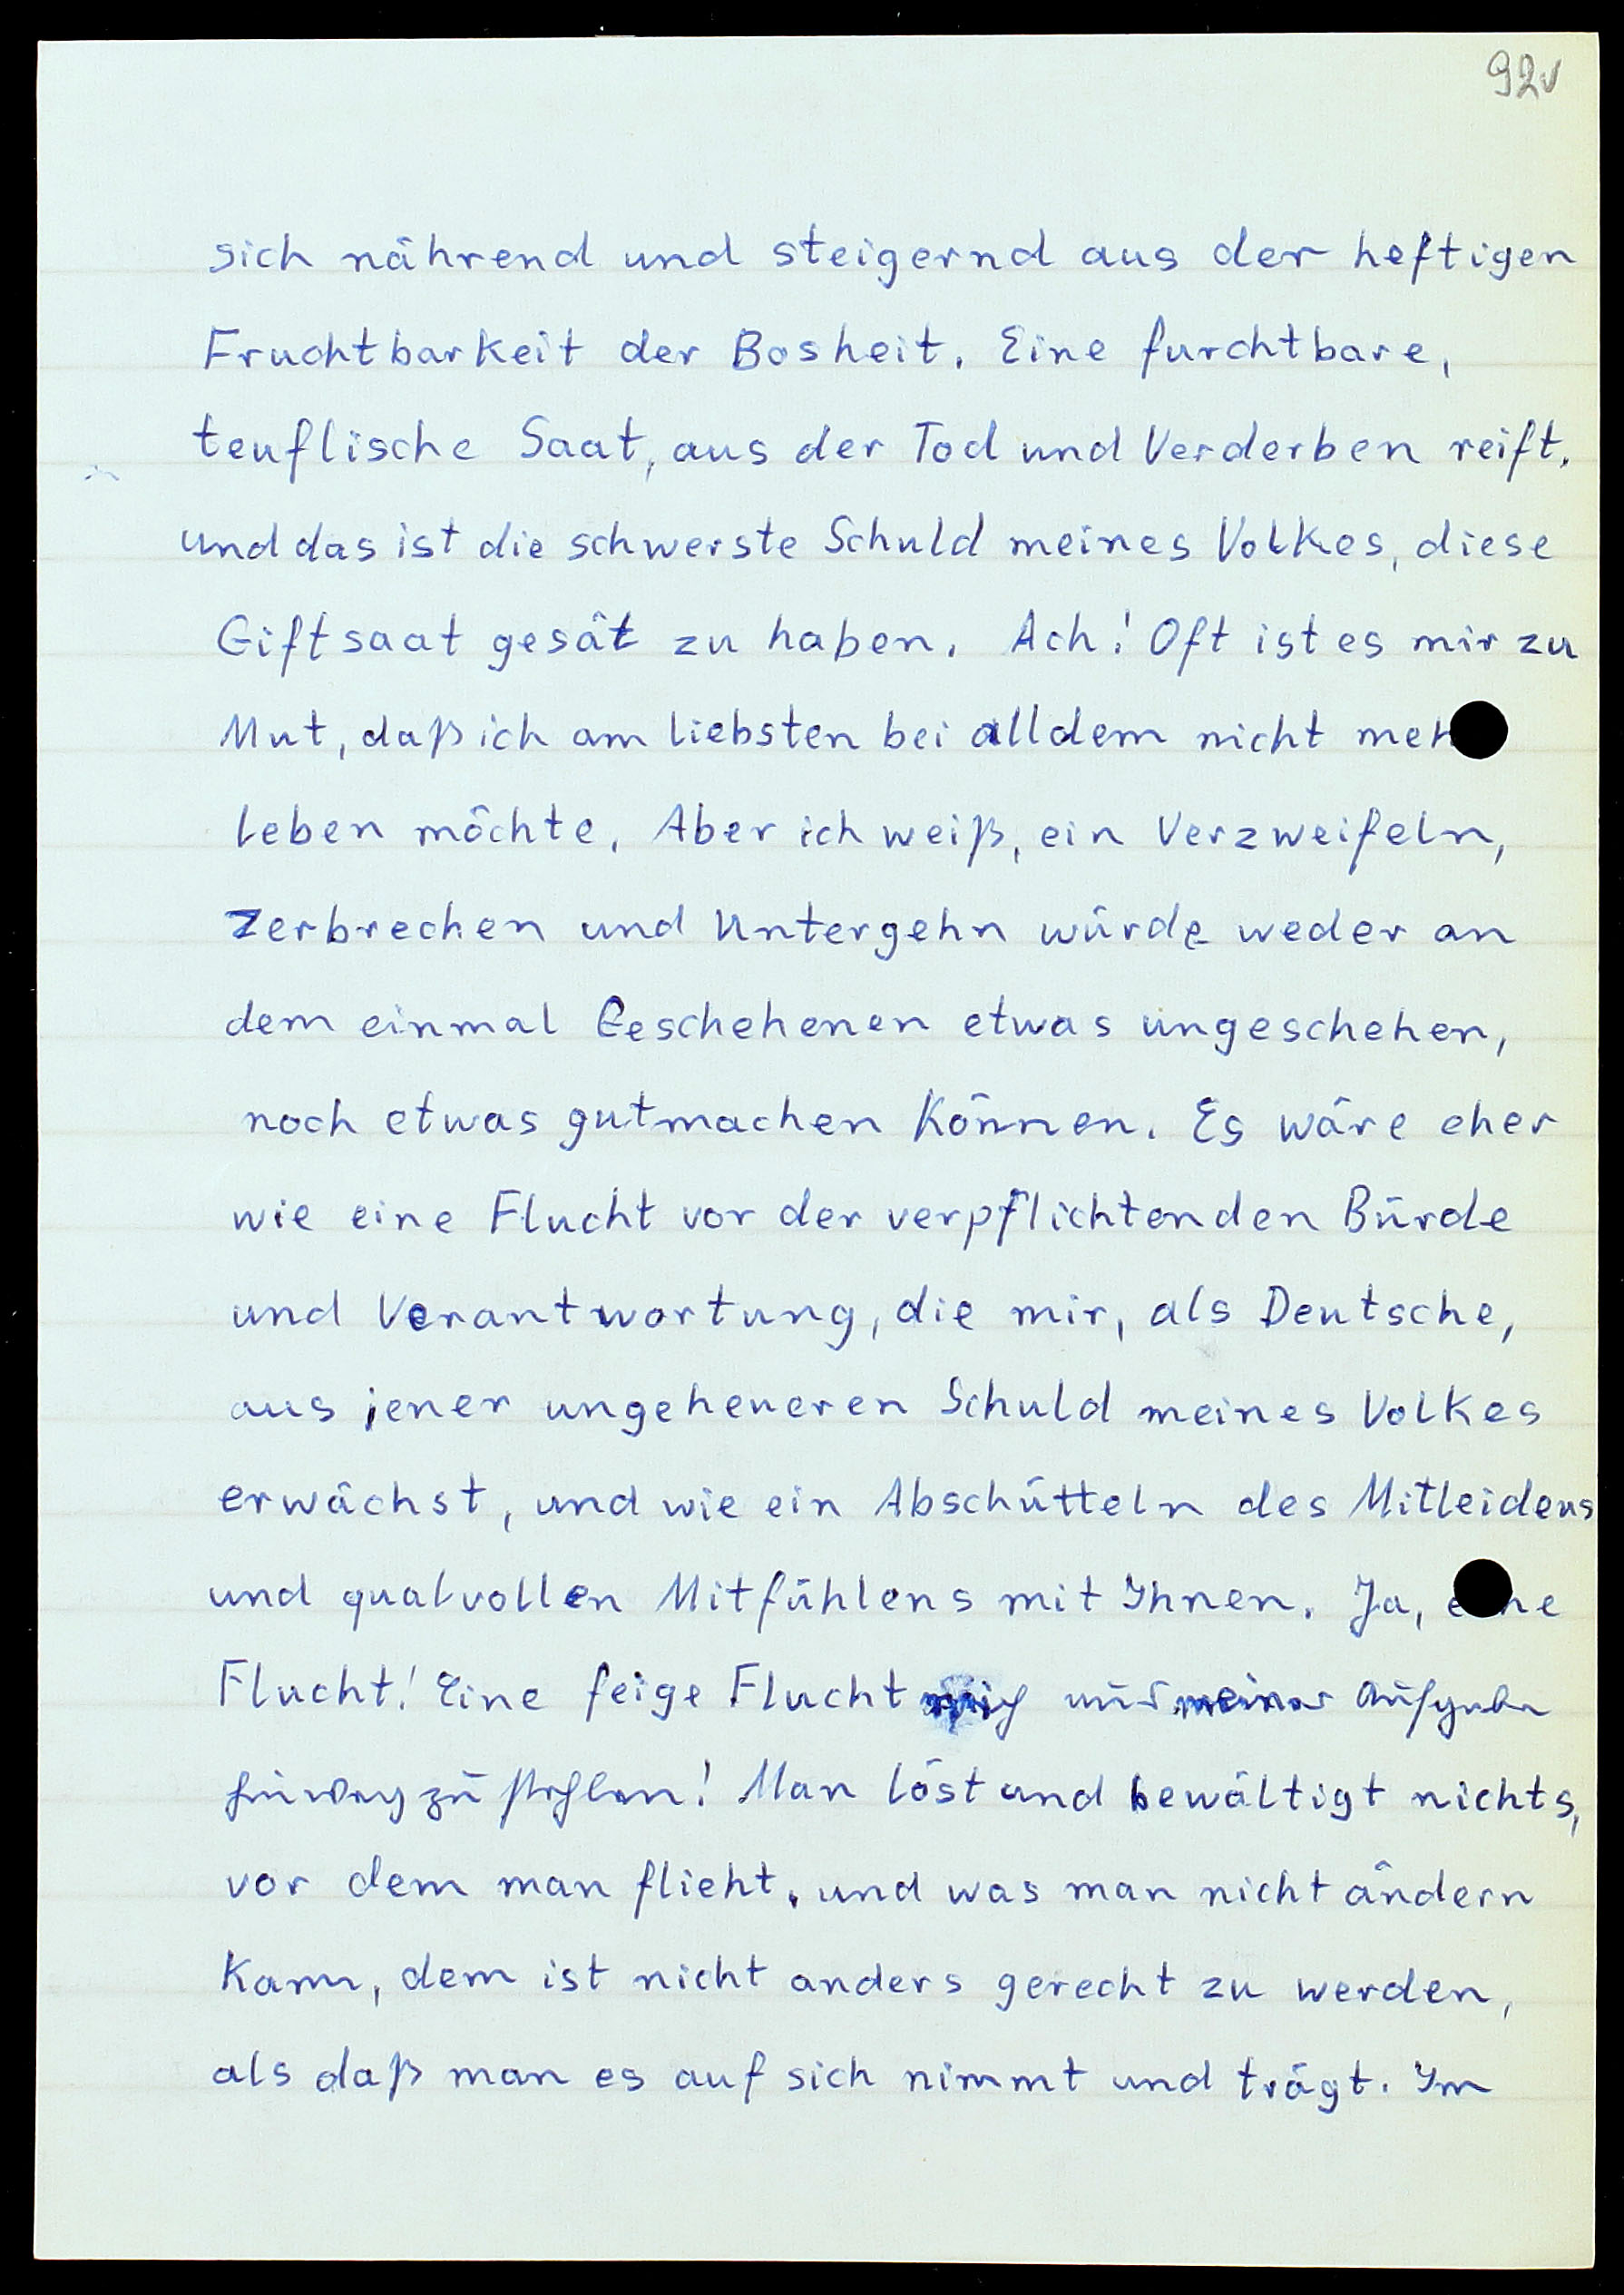 92v
sich nährend und steigernd aus der heftigen
Fruchtbarkeit der Bosheit. Eine furchtbare,
teuflische Saat, aus der Tod und Verderben reift.
und das ist die schwerste Schuld meines Volkes, diese
Giftsaat gesät zu haben. Ach! Oft ist es mir zu
Mut, daß ich am liebsten bei alldem nicht meh
leben möchte. Aber ich weiß, ein Verzweifeln,
Zerbrechen und Untergehn würde weder an
dem einmal Geschehenen etwas ungeschehen,
noch etwas gutmachen können. Es wäre eher
wie eine Flucht vor der verpflichtenden Bürde
und Verantwortung, die mir, als Deutsche,
aus jener ungeheueren Schuld meines Volkes
erwächst, und wie ein Abschütteln des Mitleidens
und qualvollen Mitfühlens mit Ihnen. Ja, eine
Flucht! Eine feige Flucht mich aus meiner Aufgabe
hinwegzustehlen! Man löst und bewältigt nichts,
vor dem man flieht. und was man nicht ändern
kann, dem ist nicht anders gerecht zu werden,
als daß man es auf sich nimmt und trägt. Im